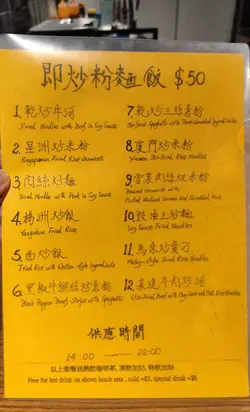 即炒粉麵飯 $50
1. 乾炒牛河
Fried Noodles with Beef in Soy Sauce
2. 星洲炒米
Singaporean Fried Rice Vermicelli
3 肉絲炒麵
Fried Noodle with Pork in Soy Sauce
4. 楊洲炒飯
Yangzhou Fried Rice
5. 西炒飯
Fried Rice with Western-style Ingredients
6. 黑椒牛柳絲炒意粉
Black Pepper Beef Strips with Spaghetti
7. 乾炒三絲意粉
Stir-fried Spaghetti with Three Shredded Ingredients
8 廈門炒米粉
Xiamen Stir-fried Rice Noodles
9 雪菜肉絲炆米粉
Braised Vermicelli with
Pickled Mustard Greens and Shredded Pork
10 豉油王炒麵
Soy Sauce Fried Noodles
11. 馬來炒貴刁
Malay-Style Fried Rice Noodles
12.
Stir-fried Beef with and Flat Rice Noodles
供應時間
14:00 — 22:00
以上套餐送熱飲咖啡茶, 凍飲加$3, 特飲加$6
Free for hot drink on above lunch sets , cold +$3, special drink +$6